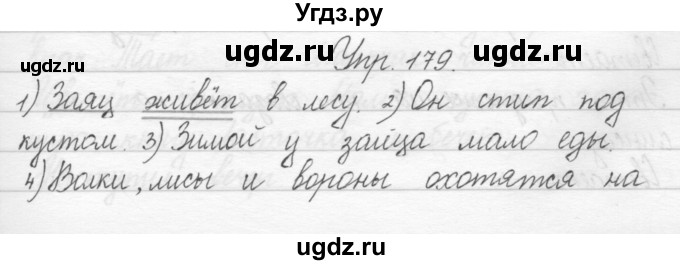 Угдз.ру
ugdz.ru ugdz.ru Упр. 179. ugdz.ru
1) Заяц живёт в лесу. 2) Он спит под
кустом. 3) Зимой у зайца мало еды.
4) Волки, лисы и вороны охотятся на
ugdz.ru ugdz.ru